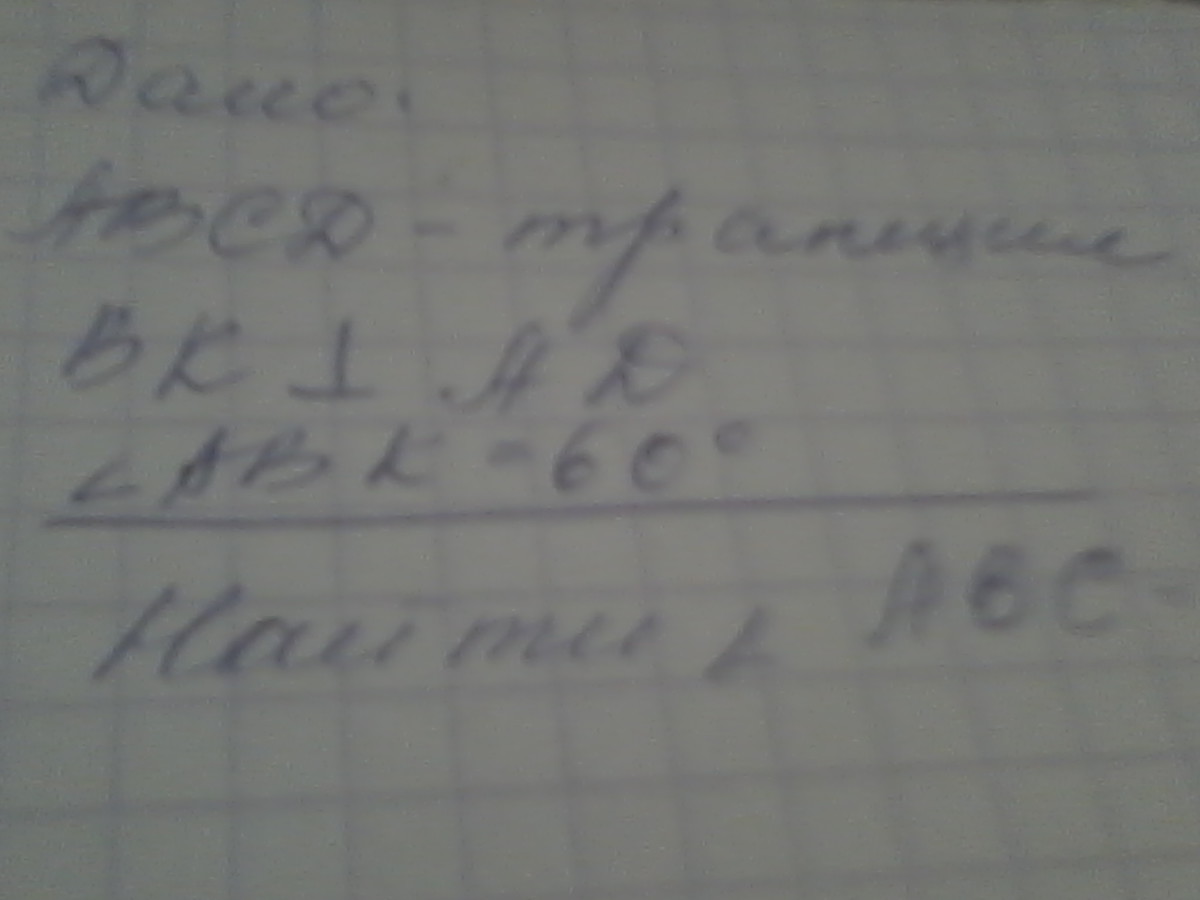 Дано.
ABCD - трапеция
BK ⊥ AD
∠ABK = 60°
Найти ∠ ABC